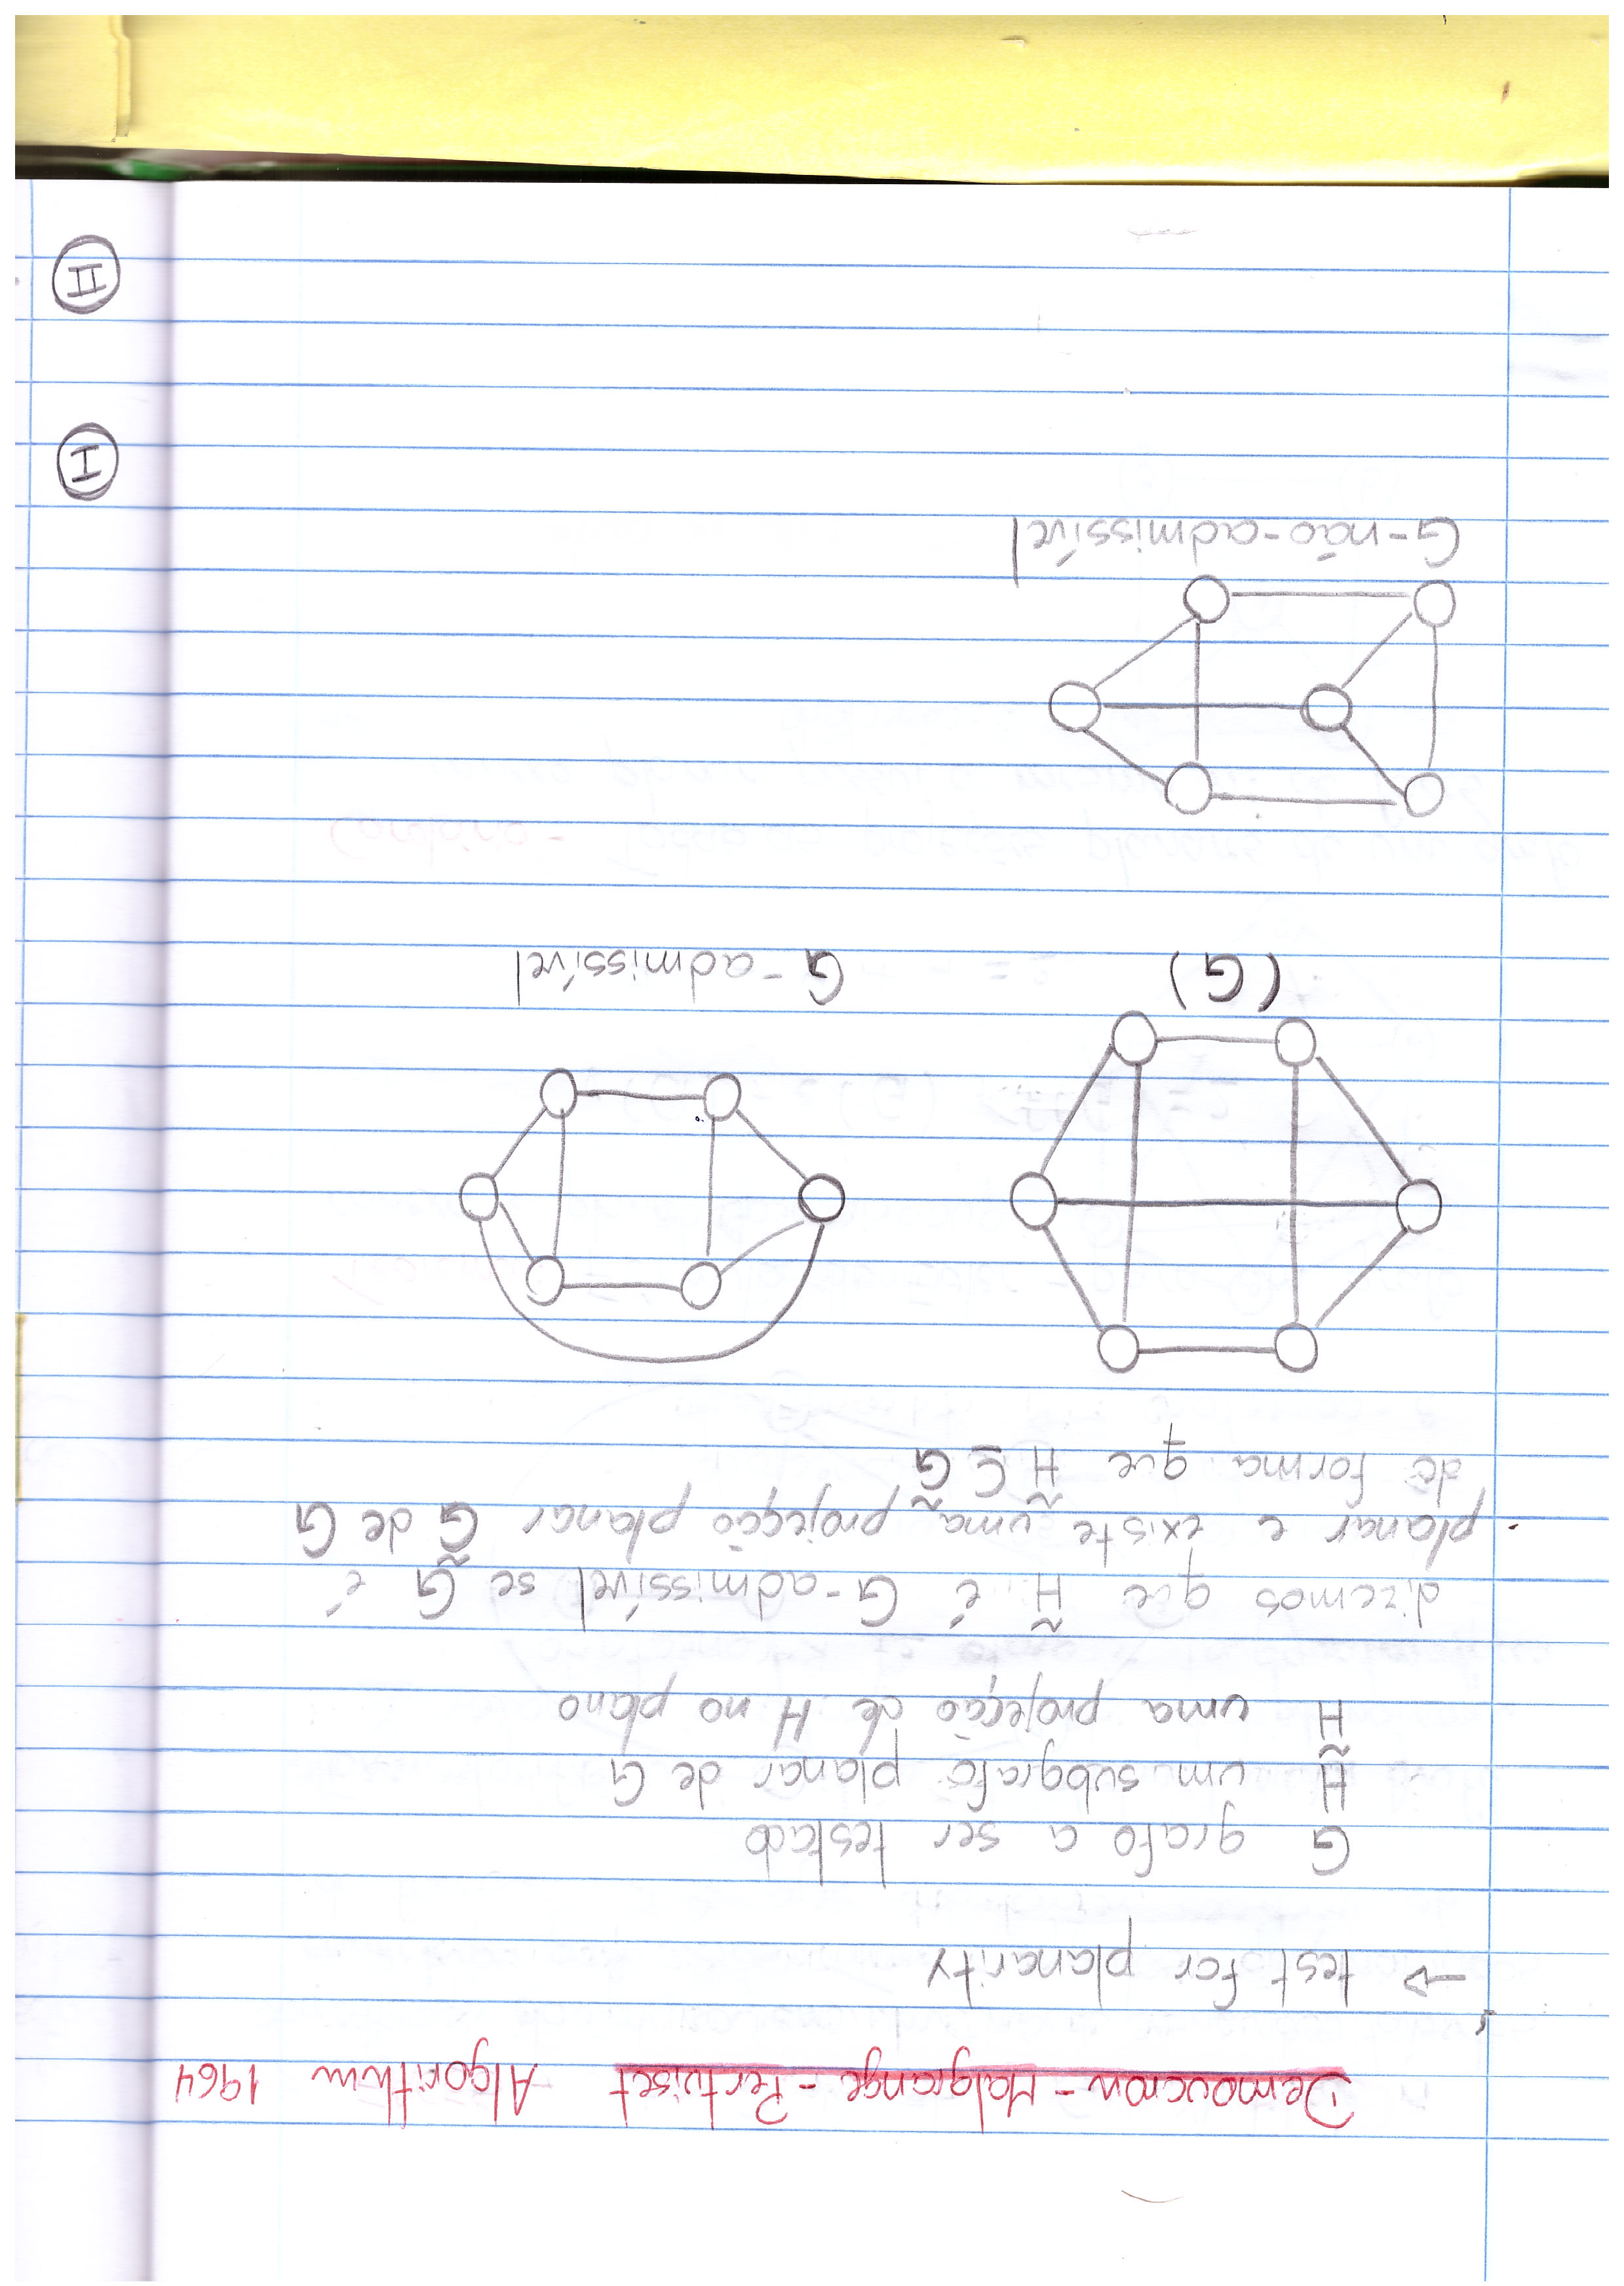 Demoucron - Malgrange - Pertuiset Algorithm 1964
→ test for planarity
G grafo a ser testado
H um subgrafo planar de G
H̃ uma projeção de H no plano
dizemos que H̃ é G-admissível se G é
planar e existe uma projeção planar G̃ de G
de forma que H̃ ⊆ G̃
(G)
G-admissível
G-não-admissível
I
II